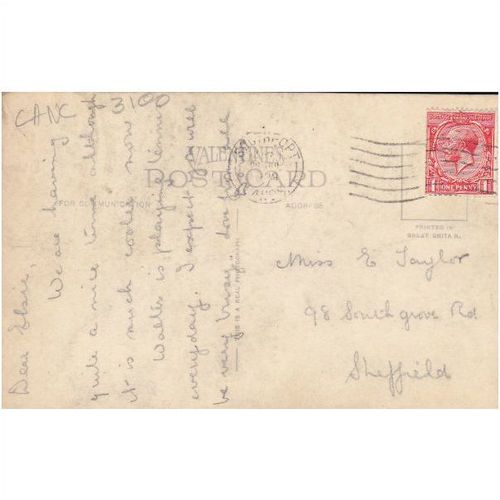 CANC 3100
VALENTINE'S
POST CARD
FOR COMMUNICATION
ADDRESS
PRINTED IN
GREAT BRITAIN.
THIS IS A REAL PHOTOGRAPH
ONE PENNY
Dear Elsie,
We are having
quite a nice time although
it is much cooler now
Walter is playing tennis
everyday. I expect you will
be very busy love from all
Miss E Taylor
98 South grove Rd
Sheffield